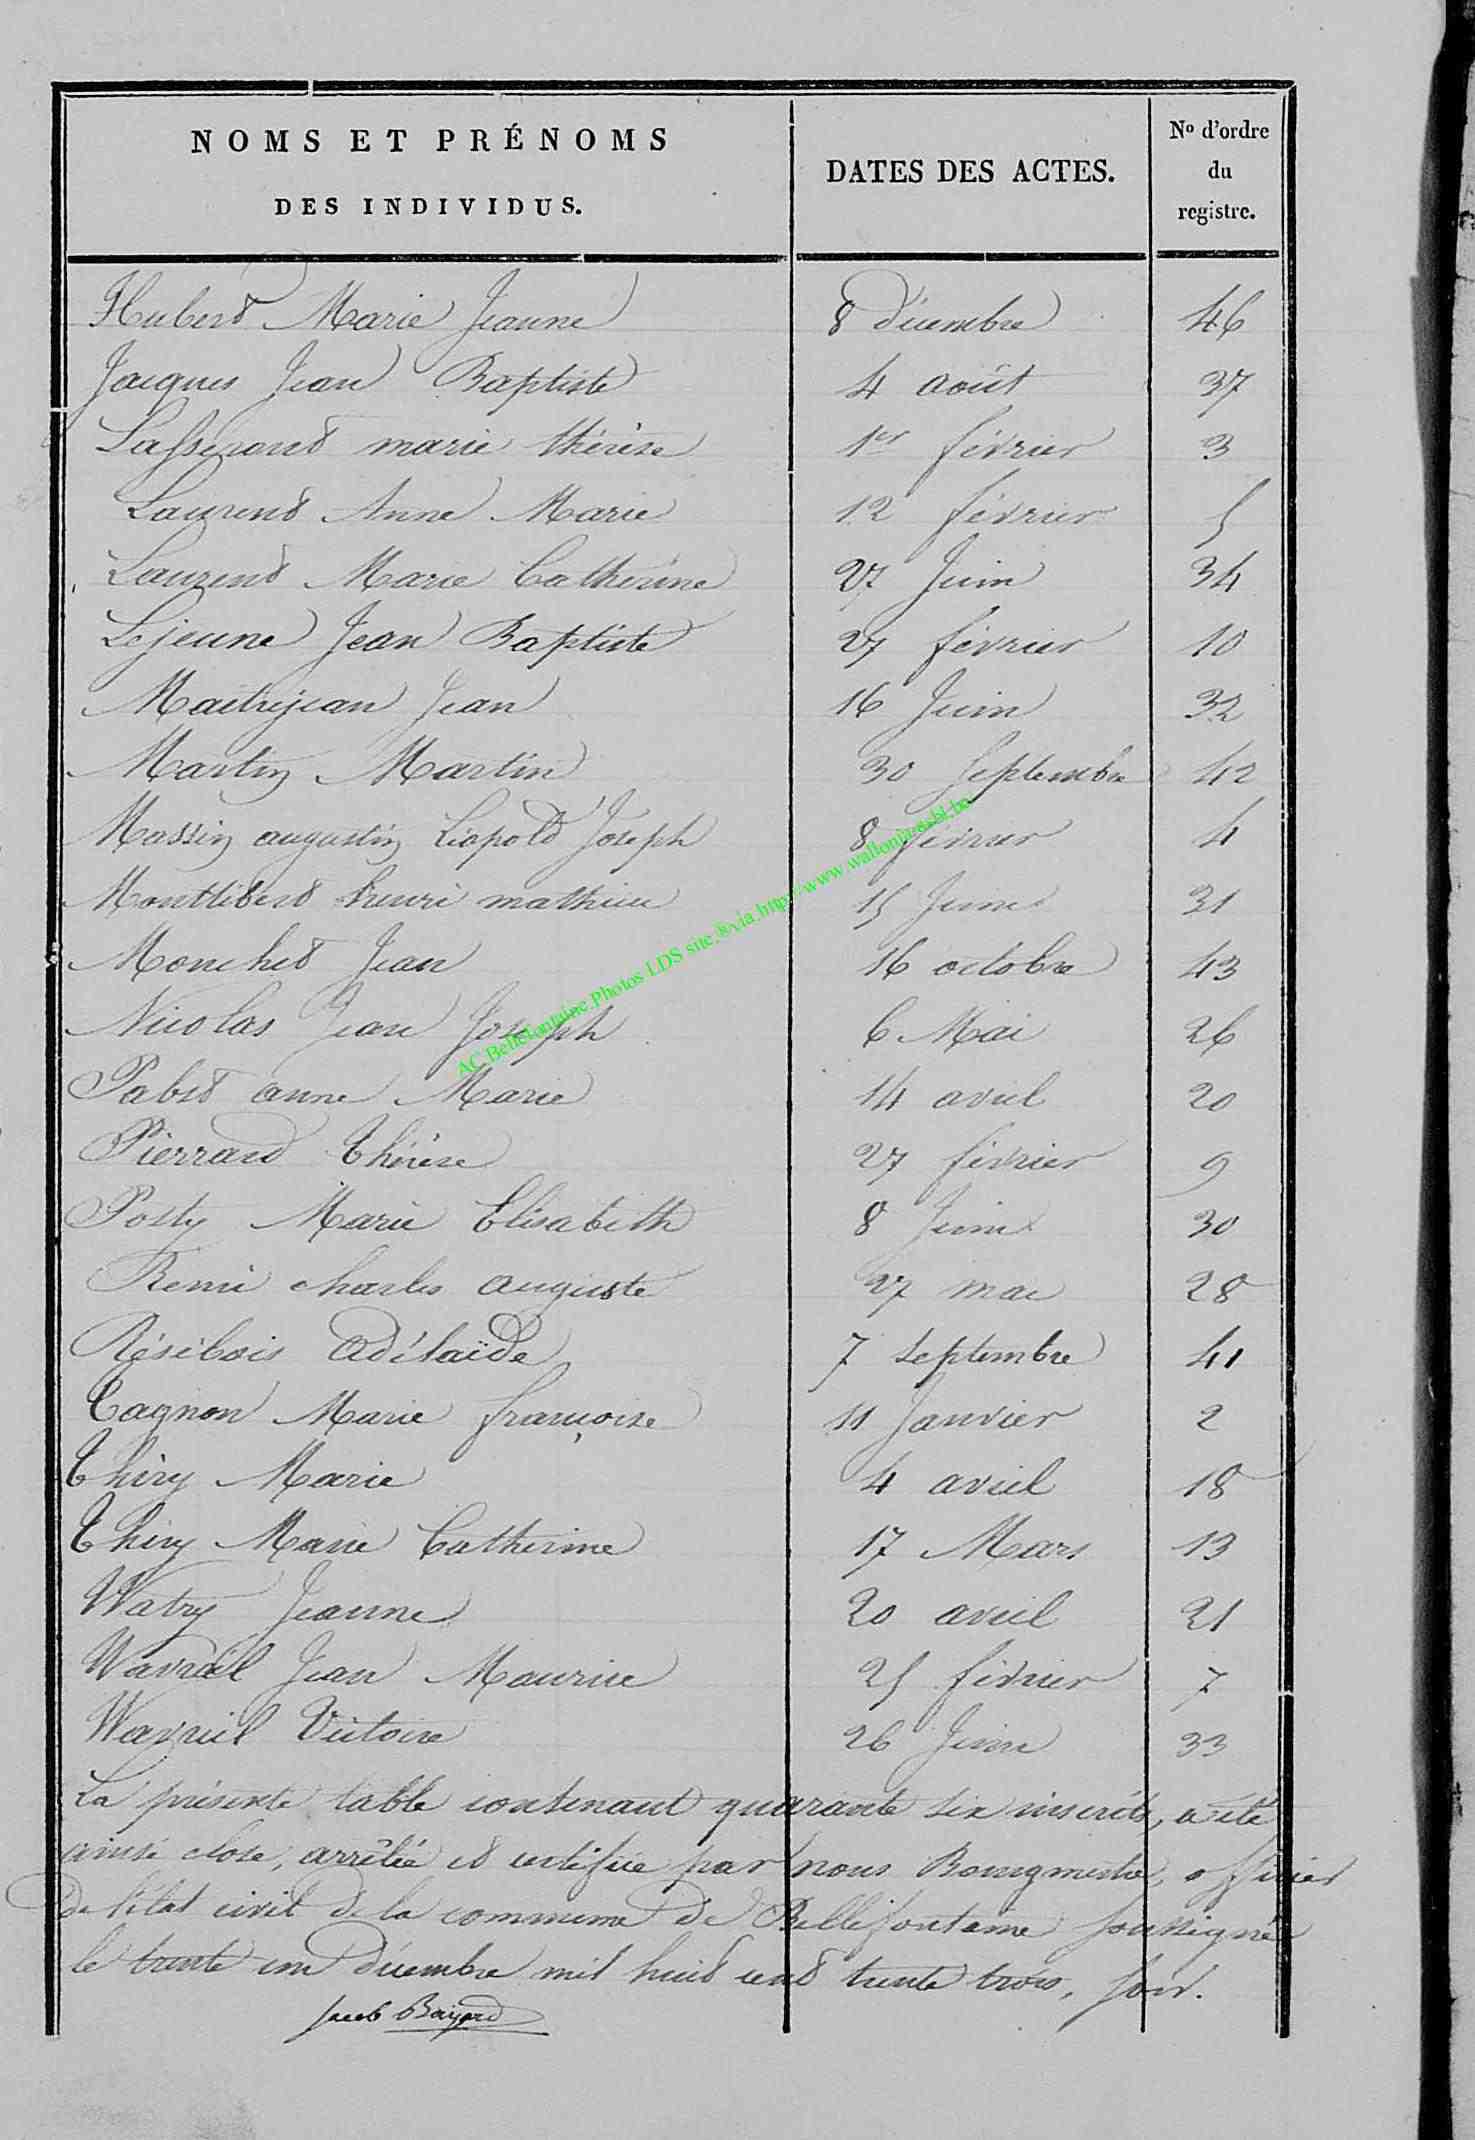 NOMS ET PRÉNOMS
DES INDIVIDUS.
DATES DES ACTES.
Nº d'ordre
du
registre.
Hubert Marie Jeanne 8 décembre 46
Jacques Jean Baptiste 4 août 37
Lasserond marie thérèse 1er février 3
Laurent Anne Marie 12 février 5
Laurent Marie Catherine 27 Juin 34
Lejeune Jean Baptiste 27 février 10
Maitrejean Jean 16 Juin 32
Martin Martin 30 Septembre 42
Massin augustin Léopold Joseph 8 février 4
Montlibert henri mathieu 15 Juin 31
Monchet Jean 16 octobre 43
Nicolas Jean Joseph 6 Mai 26
Pabst anne Marie 14 avril 20
Pierrard Thérèse 27 février 9
Posty Marie Elisabeth 8 Juin 30
Remi charles auguste 27 mai 28
Résibois Adélaïde 7 septembre 41
Tagnon Marie françoise 11 Janvier 2
Thiry Marie 4 avril 18
Thiry Marie Catherine 17 Mars 13
Watry Jeanne 20 avril 21
Wavreil Jean Maurice 25 février 7
Wavreil Victoire 26 Juin 33
La présente table contenant quarante six inscrits, a été
ainsi close, arrêtée et certifiée par nous Bourgmestre, officier
de l'état civil de la commune de Bellefontaine soussigné
le trente un décembre mil huit cent trente trois, soir.
Jacob Bayard
AC.Bellefontaine.Photos LDS site.®.via.http://www.wallonia-asbl.be